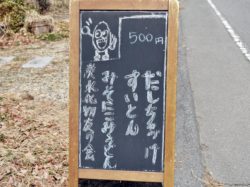 500円
だしちゃづけ
すいとん
みそにこみうどん
炭水化物友の会